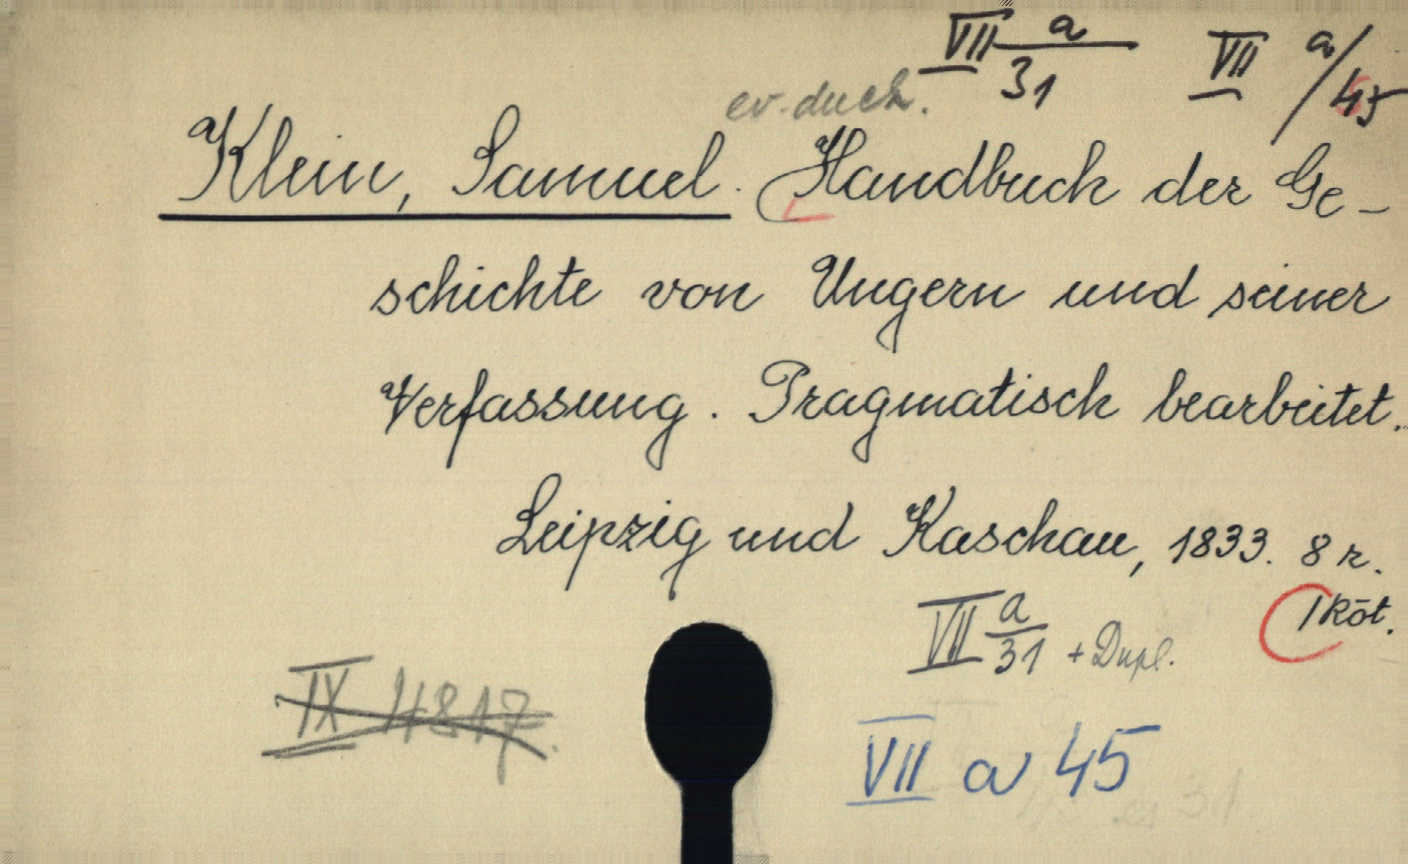 VII a/31 VII a/45
ev. duch.
Klein, Samuel. Handbuch der Ge-
schichte von Ungern und seiner
Verfassung. Pragmatisch bearbeitet.
Leipzig und Kaschau, 1833. 8 r.
1 Köt.
VII a/31 + Dupl.
IX 4817.
VII a 45